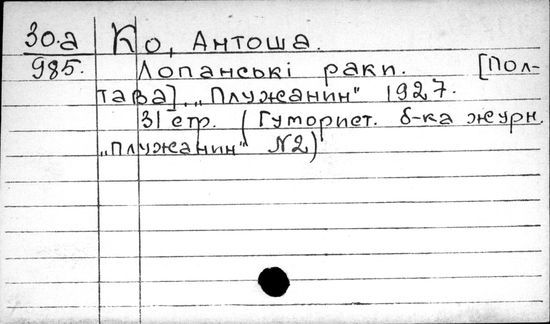 30.а Ко, Антоша.
985. Лопанські раки. [Пол-
тава], „Плужанин" 1927.
31 стр. (Гуморист. б-ка журн.
„Плужанин" №2)